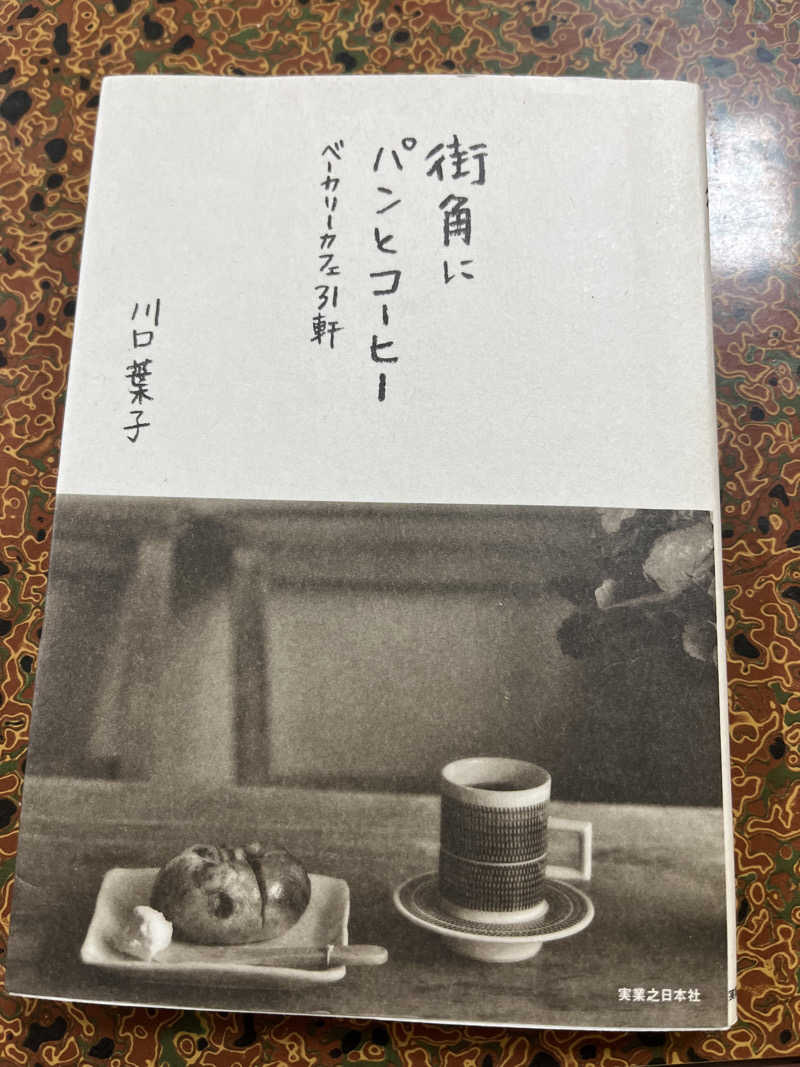 街角に
パンとコーヒー
ベーカリーカフェ31軒
川口葉子
実業之日本社